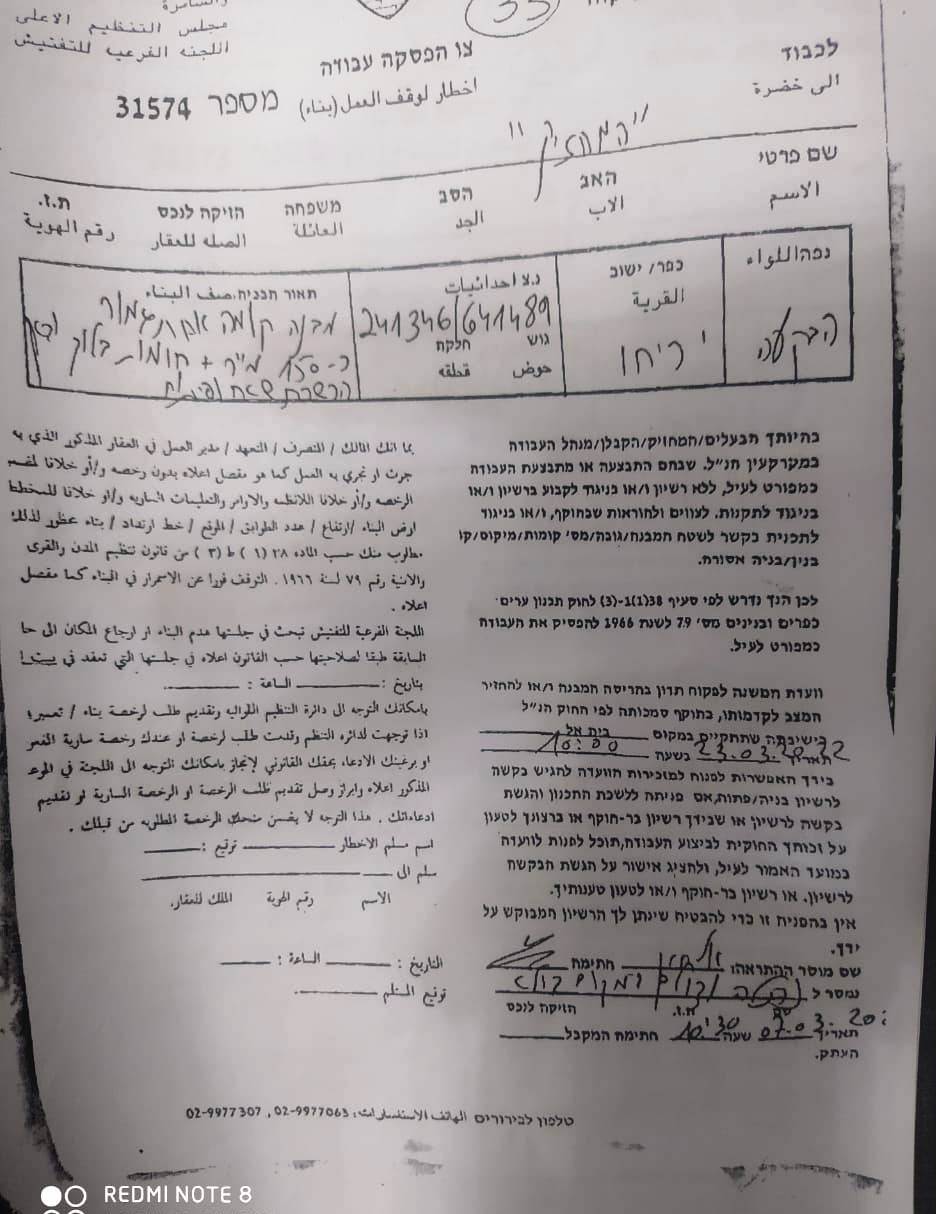 والسامرة
مجلس التنظيم الاعلى
اللجنه الفرعيه للتفتيش
33
לכבוד
الى خضرة
צו הפסקה עבודה
اخطار لوقف العمل (بناء)
מספר 31574
"המחזיק"
שם פרטי האב הסב משפחה הזיקה לנכס ת.ז.
الاسم الاب الجد العائلة الصله للعقار رقم الهوية
נפה اللواء
הבקעה
כפר/ישוב
القرية
יריחו
נ.צ احداثيات
241346/641489
גוש חלקה
حوض قطعه
תאור הבניה.صف البناء
מבנה קומה אחת גמור
כ-150 מ"ר + חומות בלוק
הכשרת שטח ופיתוח
בהיותך הבעלים/המחזיק/הקבלן/מנהל העבודה
במקרקעין הנ"ל. שבהם התבצעה או מתבצעת העבודה
כמפורט לעיל, ללא רשיון ו/או בניגוד לקבוע ברשיון ו/או
בניגוד לתקנות. לצווים ולהוראות שבתוקף, ו/או בניגוד
לתכנית בקשר לשטח המבנה/גובה/מס' קומות/מיקום/קו
בנין/בניה אסורה.
לכן הנך נדרש לפי סעיף 38(1)1-(3) לחוק תכנון ערים
כפרים ובנינים מס' 79 לשנת 1966 להפסיק את העבודה
כמפורט לעיל.
וועדת המשנה לפקוח תדון בהריסה המבנה ו/או להחזיר
המצב לקדמותו, בתוקף סמכותה לפי החוק הנ"ל
בישיבתה שתתקיים במקום בית אל
תאריך 23.03.2022 בשעה 10:00
בידך האפשרות לפנות למזכירות הוועדה להגיש בקשה
לרשיון בניה/פתוח,אם פניתה ללשכת התכנון והגשת
בקשה לרשיון או שבידך רשיון בר-תוקף או ברצונך לטעון
על זכותך החוקית לביצוע העבודה,תוכל לפנות לוועדה
במועד האמור לעיל, ולהציג אישור על הגשת הבקשה
לרשיון. או רשיון בר-תוקף ו/או לטעון טענותיך.
אין בהפניה זו כדי להבטיח שינתן לך הרשיון המבוקש על
ידך.
שם מוסר ההתראה: חתימה
נמסר ל
שם ת.ז. הזיקה לנכס
תאריך 07.03.20 שעה 10:30 חתימה המקבל
העתק.
بما انك المالك / المتصرف / المتعهد / مدير العمل في العقار المذكور الذي به
جرت او تجري به العمل كما هو مفصل اعلاه بدون رخصه و/أو خلافا لنفس
الرخصه و/أو خلافا للانظمه والاوامر والتعليمات الساريه و/او خلافا للمخطط
ارض البناء /ارتفاع / عدد الطوابق / الموقع / خط ارتداد / بناء محظور لذلك
مطلوب منك حسب الماده ٣٨ (١) ط (٣) من قانون تنظيم المدن والقرى
والابنية رقم ٧٩ لسنة ١٩٦٦. التوقف فورا عن الاستمرار في البناء كما مفصل
اعلاه .
اللجنة الفرعية للتفتيش تبحث في جلستها هدم البناء او ارجاع المكان الى حا
السابقة طبقا لصلاحيتها حسب القانون اعلاه في جلستها التي تعقد في بيت ا
بتاريخ : الساعة :
بامكانك التوجه الى دائرة التنظيم اللوائيه وتقديم طلب لرخصة بناء / تعمير؛
اذا توجهت لدائره التنظم وقدمت طلب لرخصة او عندك رخصة سارية المفعو
او برغبتك الادعاء بحقك القانوني لإنجاز بامكانك التوجه الى اللجنة في الموعد
المذكور اعلاه وابراز وصل تقديم طلب الرخصة او الرخصة السارية او لتقديم
ادعاءاتك . هذا التوجه لا يضمن منحك الرخصة المطلوبه من قبلك .
اسم مسلم الاخطار توقيع :
سلم الى
الاسم رقم الهوية الملك للعقار.
التاريخ : الساعة :
توقيع المستلم
טלפון לבירורים الهاتف الاستفسارات: 02-9977063 , 02-9977307
REDMI NOTE 8